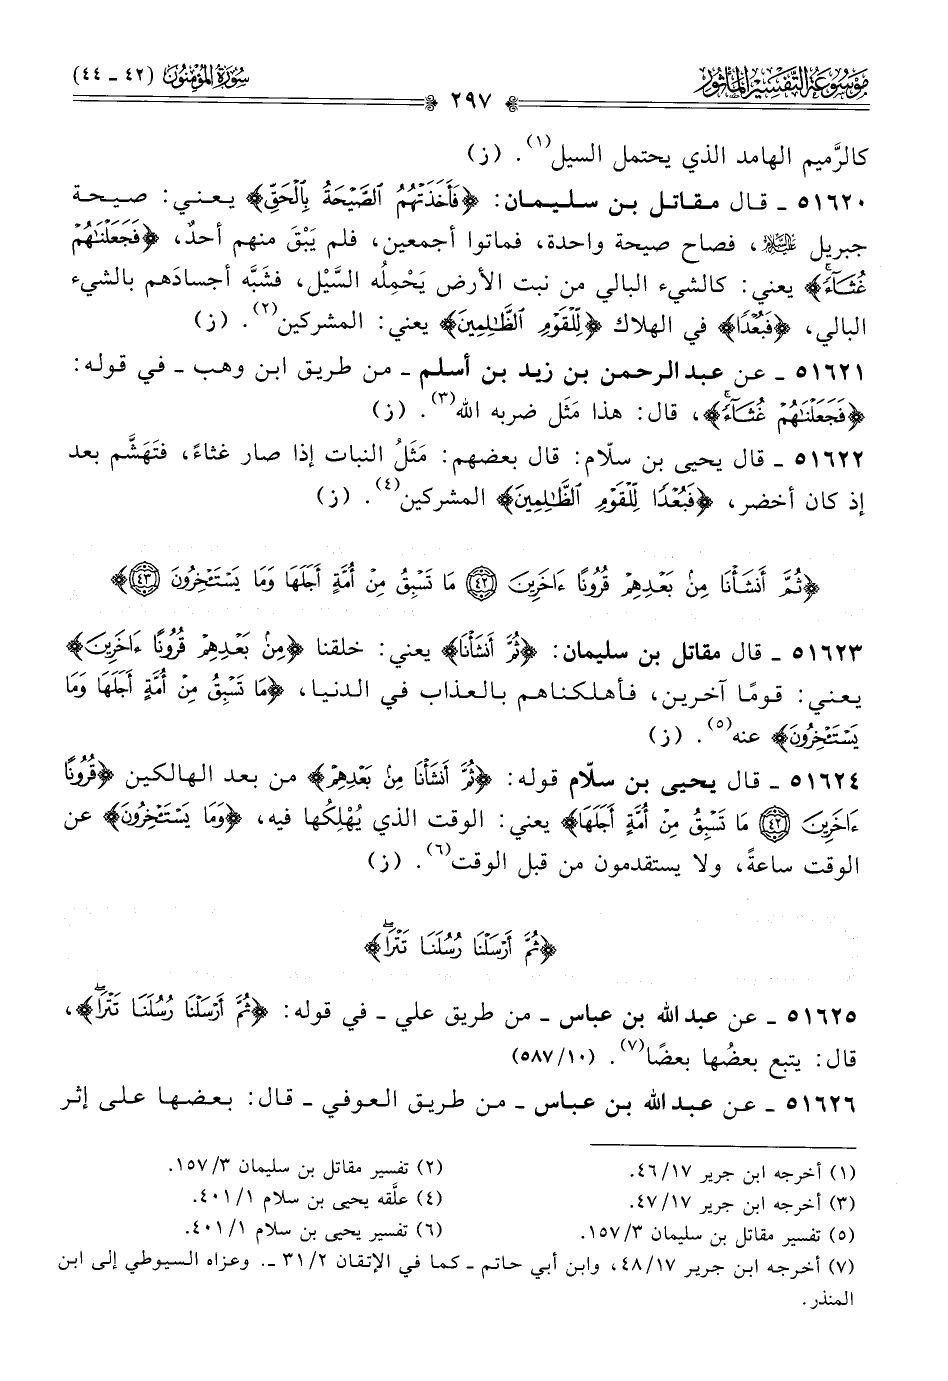 موسوعة التفسير المأثور
سورة المؤمنون (٤٢ - ٤٤)
٢٩٧
كالرَّميم الهامد الذي يحتمل السيل(١). (ز)
٥١٦٢٠ - قال مقاتل بن سليمان: ﴿فَأَخَذَتْهُمُ ٱلصَّيْحَةُ بِٱلْحَقِّ﴾ يعني: صيحة
جبريل عليه السلام، فصاح صيحة واحدة، فماتوا أجمعين، فلم يَبْقَ منهم أحدٌ، ﴿فَجَعَلْنَٰهُمْ
غُثَآءً﴾ يعني: كالشيء البالي من نبت الأرض يَحْمِلُه السَّيْل، فشَبَّه أجسادَهم بالشيء
البالي، ﴿فَبُعْدًا﴾ في الهلاك ﴿لِّلْقَوْمِ ٱلظَّٰلِمِينَ﴾ يعني: المشركين(٢). (ز)
٥١٦٢١ - عن عبد الرحمن بن زيد بن أسلم - من طريق ابن وهب - في قوله:
﴿فَجَعَلْنَٰهُمْ غُثَآءً﴾، قال: هذا مَثَل ضربه الله(٣). (ز)
٥١٦٢٢ - قال يحيى بن سلّام: قال بعضهم: مَثَلُ النبات إذا صار غثاءً، فتَهَشَّم بعد
إذ كان أخضر، ﴿فَبُعْدًا لِّلْقَوْمِ ٱلظَّٰلِمِينَ﴾ المشركين(٤). (ز)
﴿ثُمَّ أَنشَأْنَا مِنۢ بَعْدِهِمْ قُرُونًا ءَاخَرِينَ ٤٢ مَا تَسْبِقُ مِنْ أُمَّةٍ أَجَلَهَا وَمَا يَسْتَـْٔخِرُونَ ٤٣﴾
٥١٦٢٣ - قال مقاتل بن سليمان: ﴿ثُمَّ أَنشَأْنَا﴾ يعني: خلقنا ﴿مِنۢ بَعْدِهِمْ قُرُونًا ءَاخَرِينَ﴾
يعني: قومًا آخرين، فأهلكناهم بالعذاب في الدنيا، ﴿مَا تَسْبِقُ مِنْ أُمَّةٍ أَجَلَهَا وَمَا
يَسْتَـْٔخِرُونَ﴾ عنه(٥). (ز)
٥١٦٢٤ - قال يحيى بن سلّام قوله: ﴿ثُمَّ أَنشَأْنَا مِنۢ بَعْدِهِمْ﴾ من بعد الهالكين ﴿قُرُونًا
ءَاخَرِينَ ٤٢ مَا تَسْبِقُ مِنْ أُمَّةٍ أَجَلَهَا﴾ يعني: الوقت الذي يُهْلِكُها فيه، ﴿وَمَا يَسْتَـْٔخِرُونَ﴾ عن
الوقت ساعةً، ولا يستقدمون من قبل الوقت(٦). (ز)
﴿ثُمَّ أَرْسَلْنَا رُسُلَنَا تَتْرَا ۖ﴾
٥١٦٢٥ - عن عبد الله بن عباس - من طريق علي - في قوله: ﴿ثُمَّ أَرْسَلْنَا رُسُلَنَا تَتْرَا ۖ﴾،
قال: يتبع بعضُها بعضًا(٧). (١٠/ ٥٨٧)
٥١٦٢٦ - عن عبد الله بن عباس - من طريق العوفي - قال: بعضها على إثر
(١) أخرجه ابن جرير ١٧/ ٤٦.
(٢) تفسير مقاتل بن سليمان ٣/ ١٥٧.
(٣) أخرجه ابن جرير ١٧/ ٤٧.
(٤) علَّقه يحيى بن سلام ١/ ٤٠١.
(٥) تفسير مقاتل بن سليمان ٣/ ١٥٧.
(٦) تفسير يحيى بن سلام ١/ ٤٠١.
(٧) أخرجه ابن جرير ١٧/ ٤٨، وابن أبي حاتم - كما في الإتقان ٢/ ٣١ -. وعزاه السيوطي إلى ابن
المنذر.